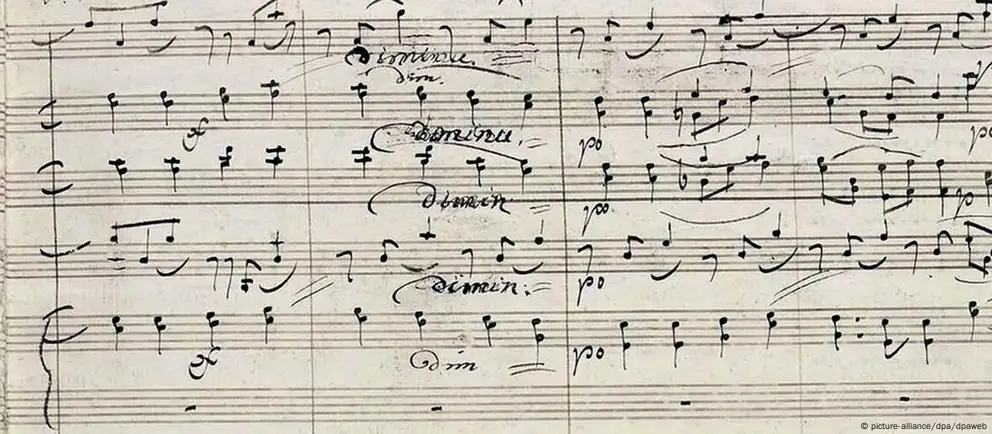 Diminu.
dim.
diminu.
po
po
dimin
po
po
dimin.
po
dim
po
© picture-alliance/dpa/dpaweb